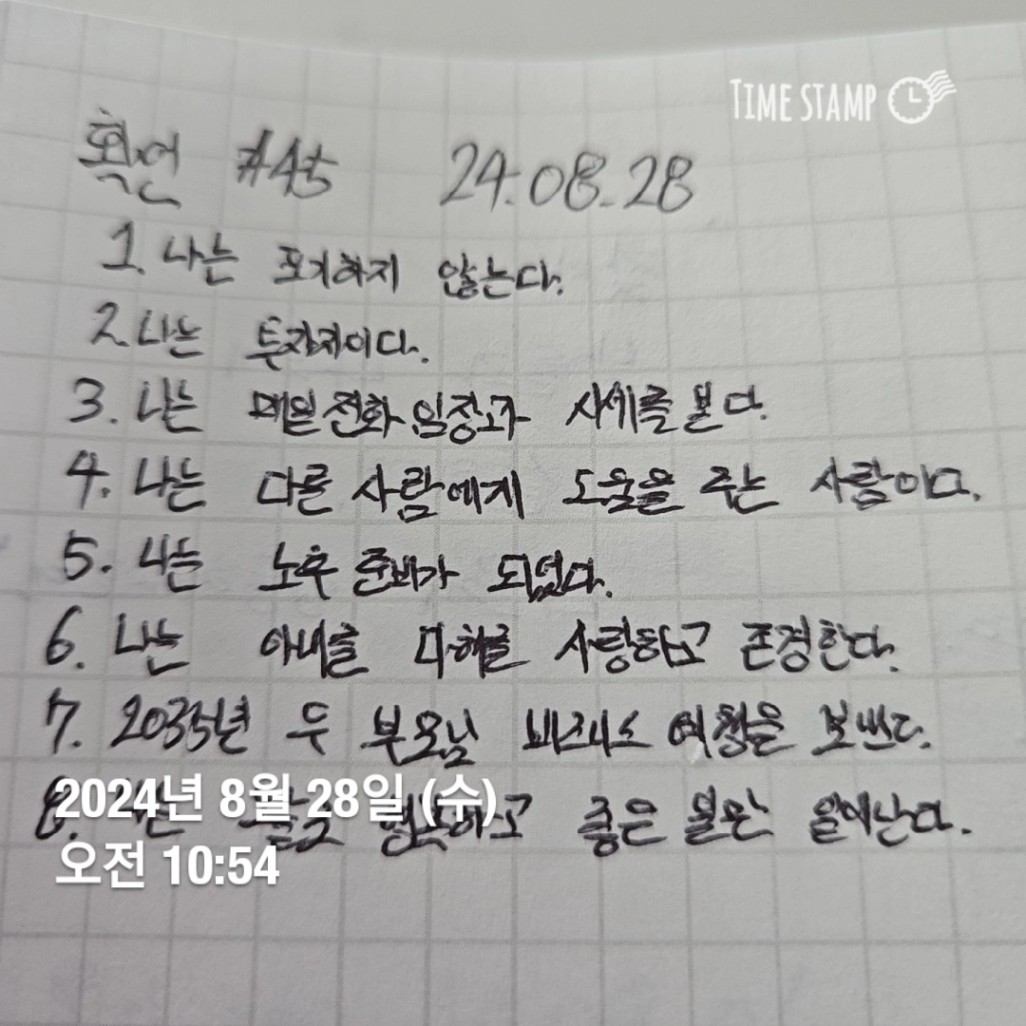 TIME STAMP
확언 #45 24.08.28
1. 나는 포기하지 않는다.
2. 나는 투자자이다.
3. 나는 매일 전화 임장과 시세를 본다.
4. 나는 다른 사람에게 도움을 주는 사람이다.
5. 나는 노후 준비가 되었다.
6. 나는 아내를 사랑하고 존경한다.
7. 2035년 두 부모님 비즈니스 여행을 보냈다.
8. 나는 하고 좋은 일만 일어난다.
2024년 8월 28일 (수)
오전 10:54